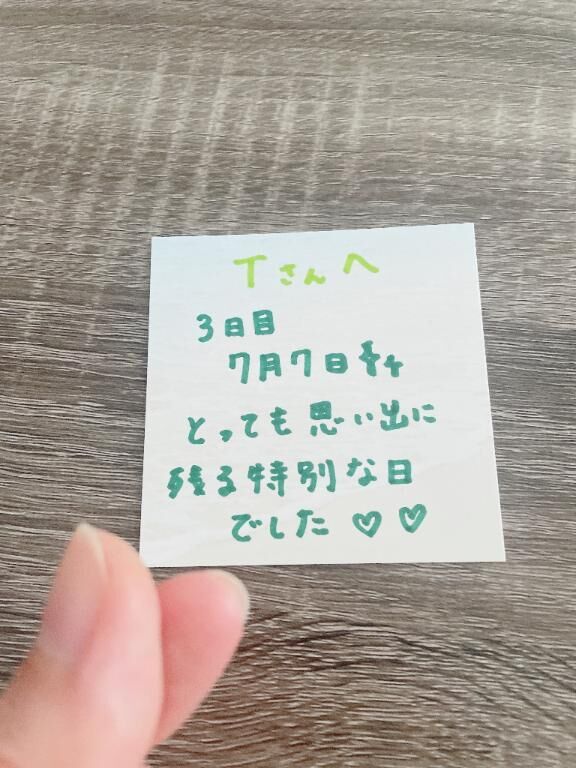 Tさんへ
3日目
7月7日
とっても思い出に
残る特別な日
でした♡♡